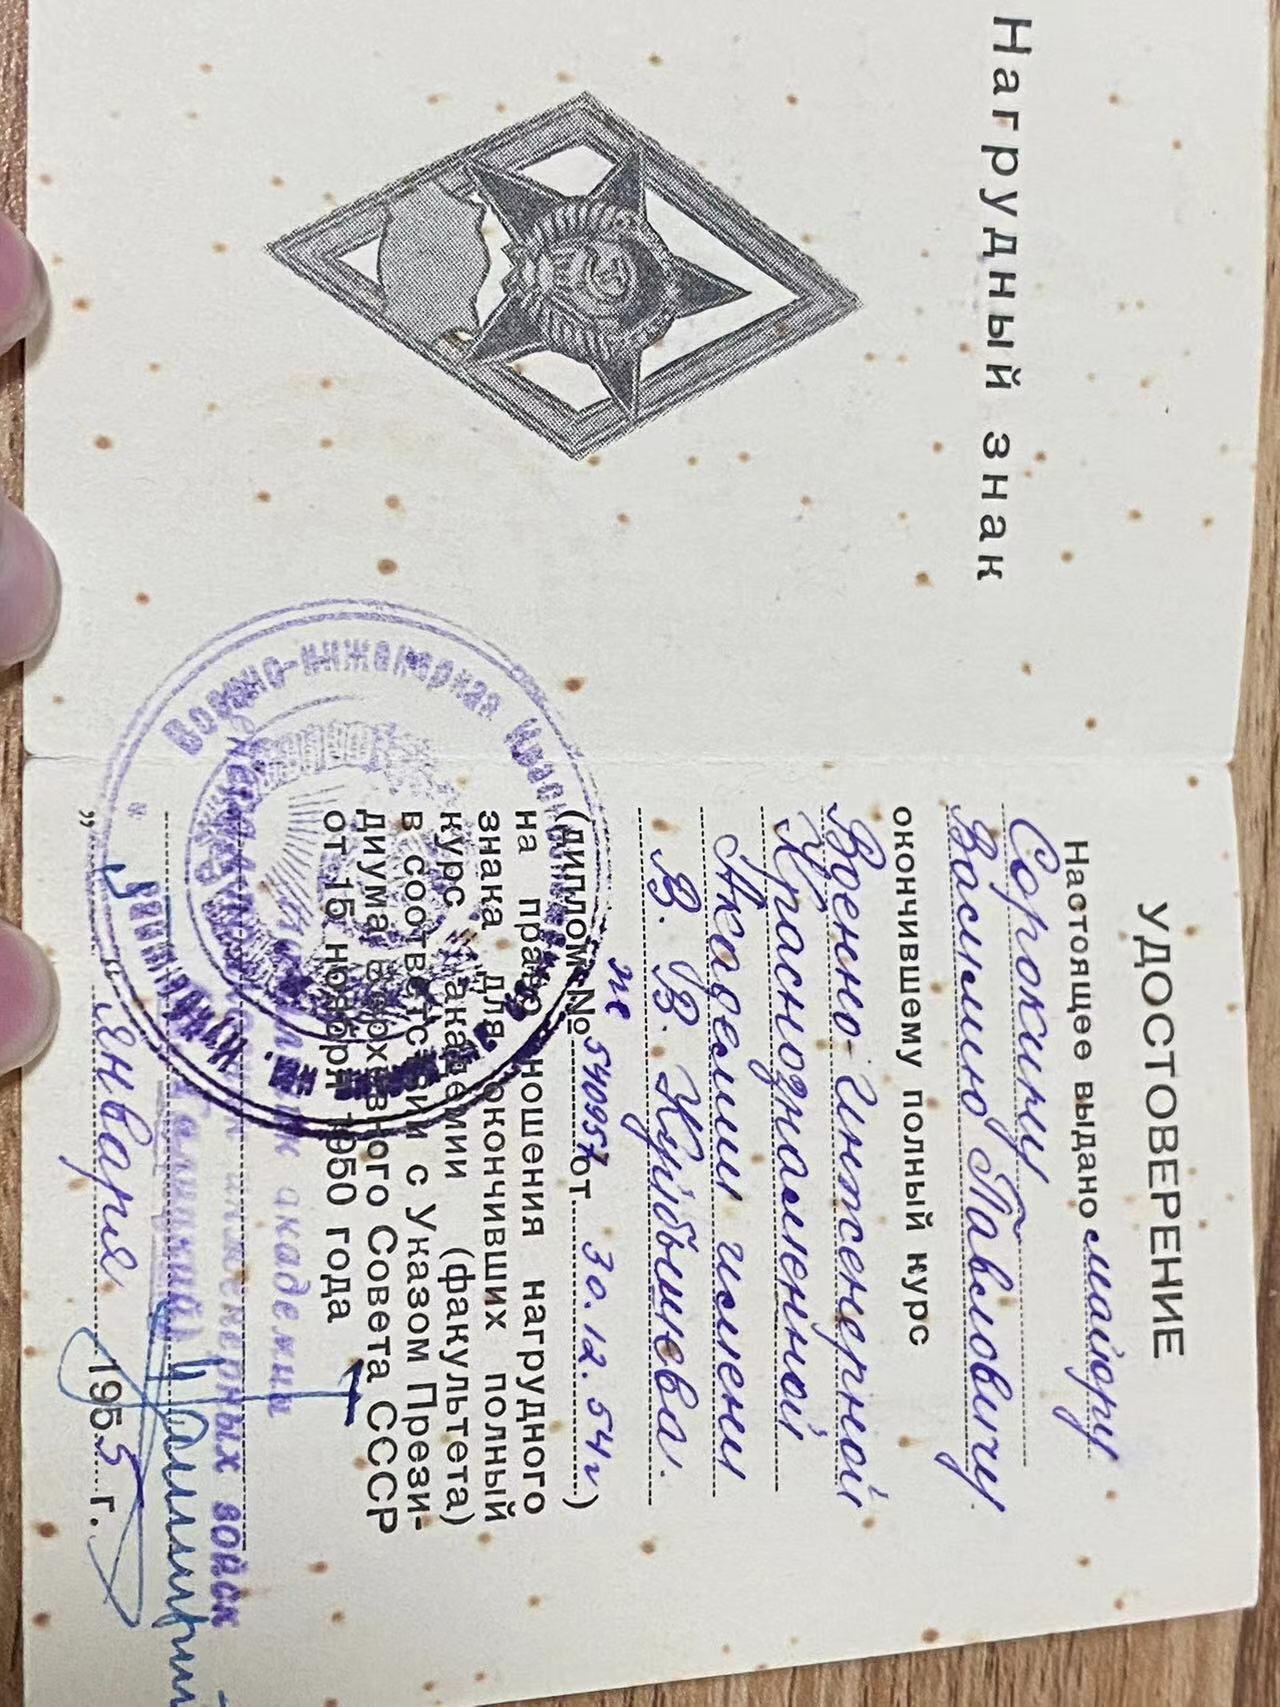 Нагрудный знак
УДОСТОВЕРЕНИЕ
Настоящее выдано майору
Сорокину
Василию Павловичу
окончившему полный курс
Военно-Инженерной
Краснознаменной
Академии имени
В. В. Куйбышева.
(диплом № 540957 от 30.12.54г.)
на право ношения нагрудного
знака для окончивших полный
курс академии (факультета)
в соответствии с Указом Прези-
диума Верховного Совета СССР
от 15 ноября 1950 года
Начальник академии
инженерных войск
„ “ января 1955 г.
Военно-инженерная
им. Куйбышева